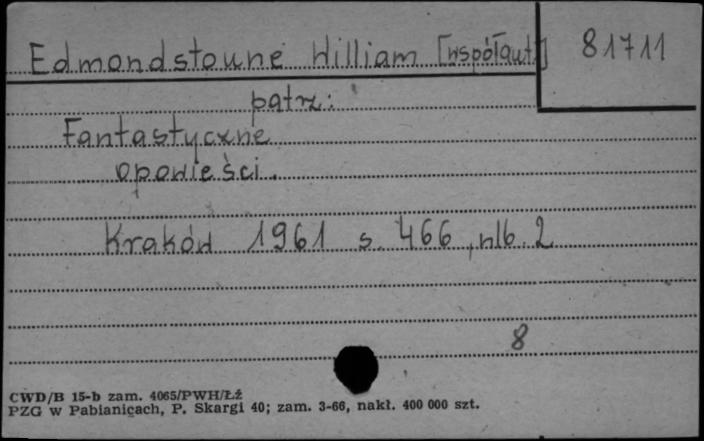 Edmondstoune William [współaut.] 81711
patrz:
Fantastyczne
opowieści.
Kraków 1961 s. 466, nlb. 2
8
CWD/B 15-b zam. 4065/PWH/Łź
PZG w Pabianicach, P. Skargi 40; zam. 3-66, nakł. 400 000 szt.